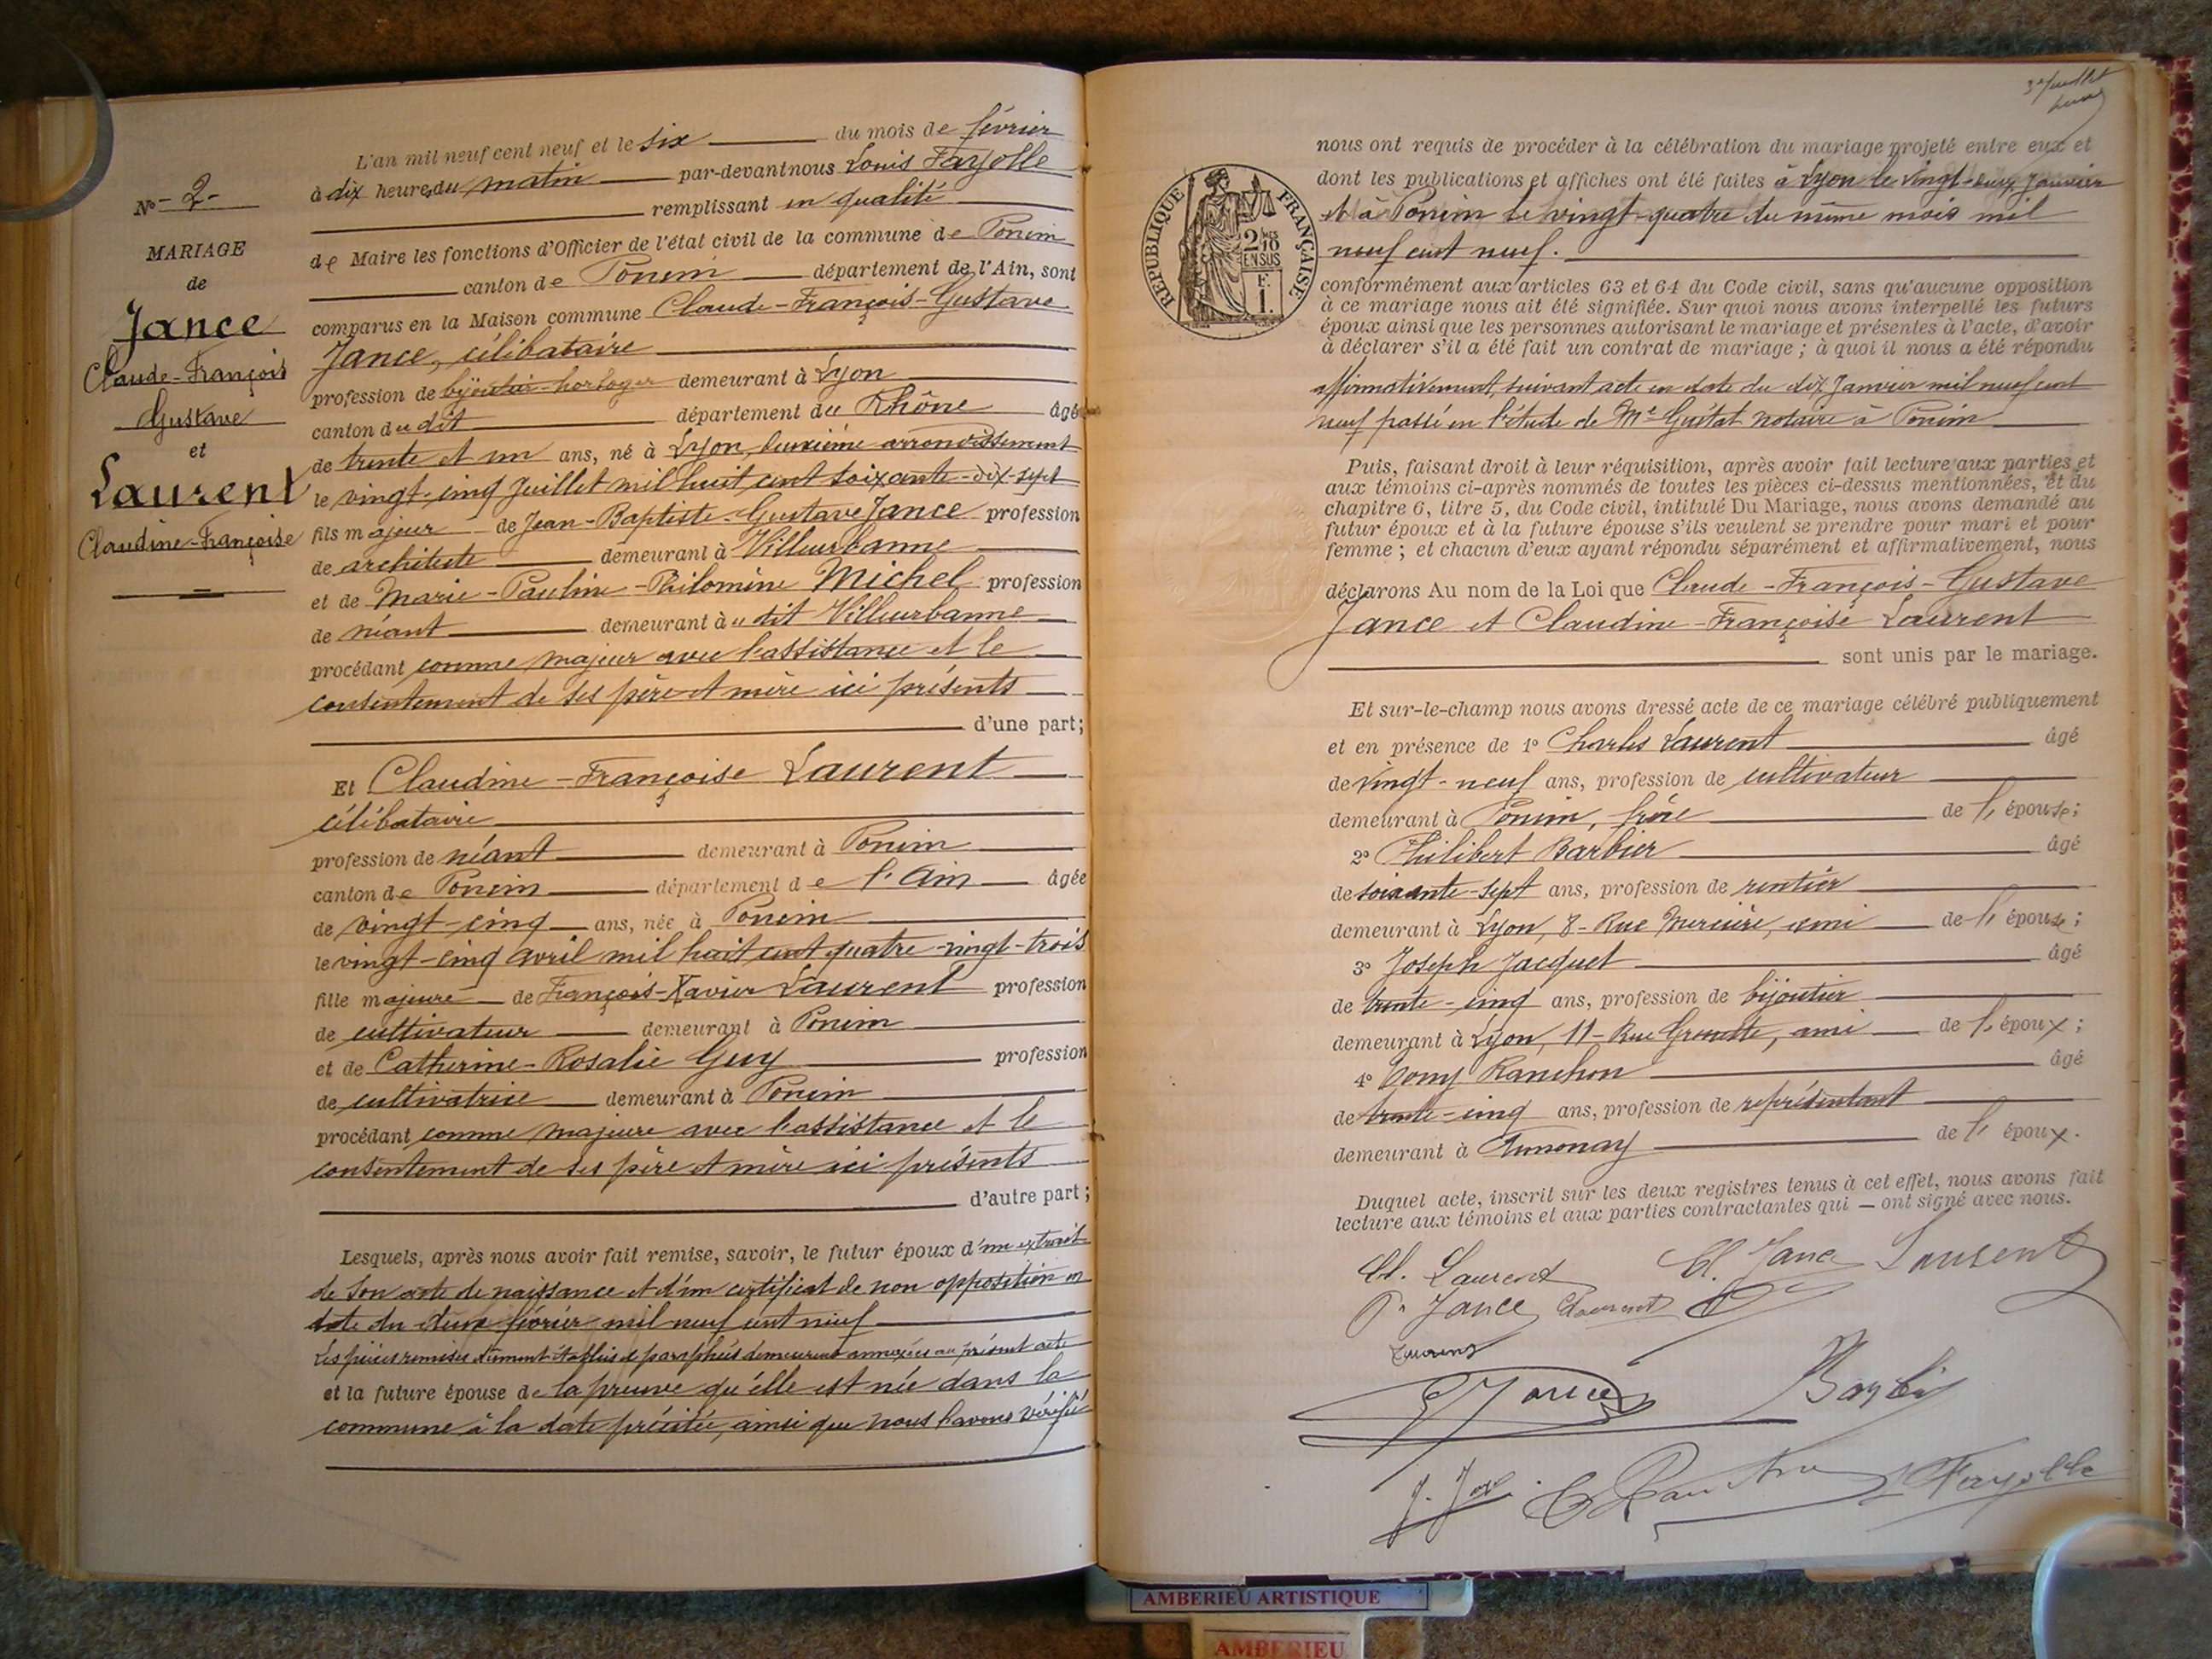 N° - 2 -
MARIAGE
de
Jance
Claude-François
Gustave
et
Laurent
Claudine-Françoise
L'an mil neuf cent neuf et le six du mois de février
à dix heures du matin par-devant nous Louis Fayolle
remplissant en qualité
de Maire les fonctions d'Officier de l'état civil de la commune de Poncin
canton de Poncin département de l'Ain, sont
comparus en la Maison commune Claude-François-Gustave
Jance, célibataire
profession de bijoutier-horloger demeurant à Lyon
canton du dit département du Rhône âgé
de trente et un ans, né à Lyon, deuxième arrondissement
le vingt-cinq Juillet mil huit cent soixante-dix-sept
fils majeur de Jean-Baptiste-Gustave Jance profession
de architecte demeurant à Villeurbanne
et de Marie-Pauline-Philomine Michel profession
de néant demeurant à u dit Villeurbanne
procédant comme majeur avec l'assistance et le
consentement de ses père et mère ici présents
d'une part;
Et Claudine-Françoise Laurent
célibataire
profession de néant demeurant à Poncin
canton de Poncin département de l'Ain âgée
de vingt-cinq ans, née à Poncin
le vingt-cinq avril mil huit cent quatre-vingt-trois
fille majeure de François-Xavier Laurent profession
de cultivateur demeurant à Poncin
et de Catherine-Rosalie Guy profession
de cultivatrice demeurant à Poncin
procédant comme majeure avec l'assistance et le
consentement de ses père et mère ici présents
d'autre part;
Lesquels, après nous avoir fait remise, savoir, le futur époux d'un extrait
de son acte de naissance et d'un certificat de non opposition en
date du deux février mil neuf cent neuf
Les pièces remises dûment établies et paraphées demeurent annexées au présent acte
et la future épouse de la preuve qu'elle est née dans la
commune à la date précitée, ainsi que nous l'avons vérifié
3e feuillet
nous ont requis de procéder à la célébration du mariage projeté entre eux et
dont les publications et affiches ont été faites à Lyon le vingt-deux Janvier
et à Poncin le vingt-quatre du même mois mil
neuf cent neuf.
RÉPUBLIQUE FRANÇAISE
2/10 EN SUS
F. 1.
conformément aux articles 63 et 64 du Code civil, sans qu'aucune opposition
à ce mariage nous ait été signifiée. Sur quoi nous avons interpellé les futurs
époux ainsi que les personnes autorisant le mariage et présentes à l'acte, d'avoir
à déclarer s'il a été fait un contrat de mariage; à quoi il nous a été répondu
affirmativement, suivant acte en date du dix Janvier mil neuf cent
neuf passé en l'étude de Me Guitat notaire à Poncin
Puis, faisant droit à leur réquisition, après avoir fait lecture aux parties et
aux témoins ci-après nommés de toutes les pièces ci-dessus mentionnées, et du
chapitre 6, titre 5, du Code civil, intitulé Du Mariage, nous avons demandé au
futur époux et à la future épouse s'ils veulent se prendre pour mari et pour
femme; et chacun d'eux ayant répondu séparément et affirmativement, nous
déclarons Au nom de la Loi que Claude-François-Gustave
Jance et Claudine-Françoise Laurent
sont unis par le mariage.
Et sur-le-champ nous avons dressé acte de ce mariage célébré publiquement
et en présence de 1° Charles Laurent âgé
de vingt-neuf ans, profession de cultivateur
demeurant à Poncin, frère de l'épouse;
2° Philibert Barbier âgé
de soixante-sept ans, profession de rentier
demeurant à Lyon, 8-Rue Mercière, ami de l'épouse;
3° Joseph Jacquet âgé
de trente-cinq ans, profession de bijoutier
demeurant à Lyon, 11-Rue Grenette, ami de l'époux;
4° Tony Ranchon âgé
de trente-cinq ans, profession de représentant
demeurant à Annonay de l'époux.
Duquel acte, inscrit sur les deux registres tenus à cet effet, nous avons fait
lecture aux témoins et aux parties contractantes qui — ont signé avec nous.
Cl. Laurent Cl. Jance Laurent
Jance Laurent
Laurent
Jance Barbier
Fayolle
AMBERIEU ARTISTIQUE
AMBERIEU